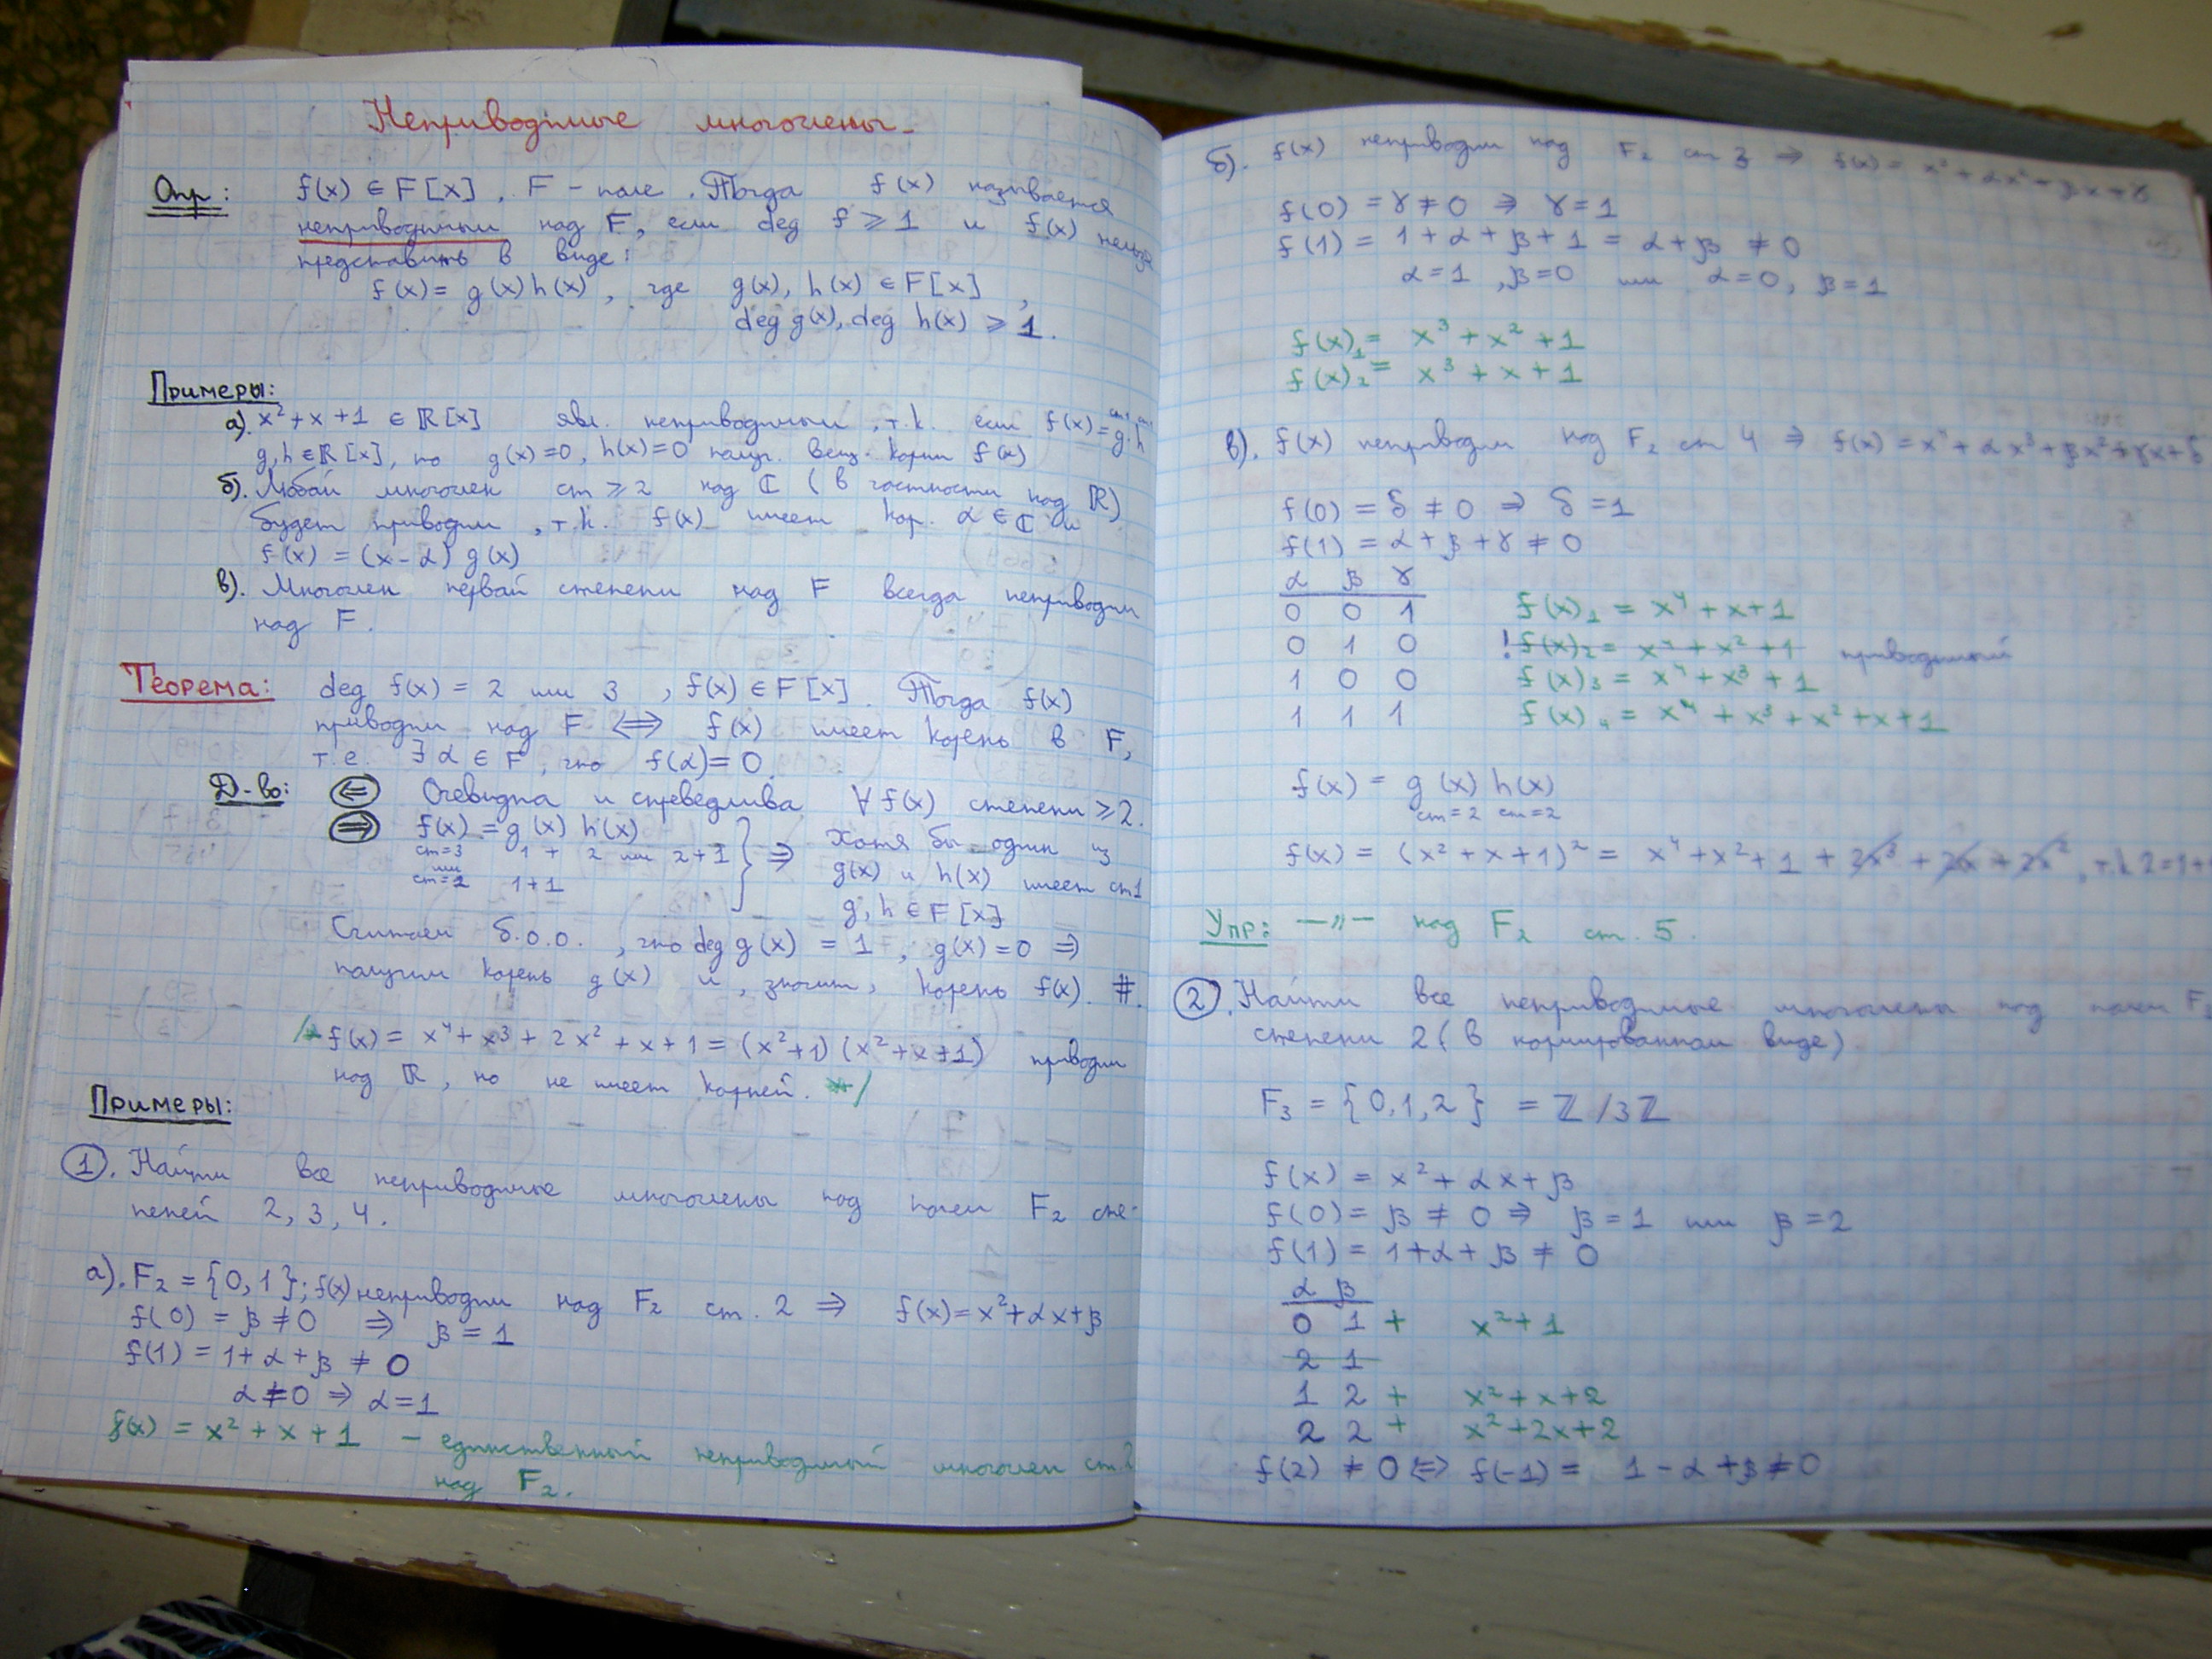 Неприводимые многочлены.
Опр: f(x) ∈ F[x], F – поле. Тогда f(x) называется
неприводимым над F, если deg f ⩾ 1 и f(x) нельзя
представить в виде:
f(x) = g(x)h(x), где g(x), h(x) ∈ F[x],
deg g(x), deg h(x) ⩾ 1.
Примеры:
а). x² + x + 1 ∈ ℝ[x] явл. неприводимым, т.к. если f(x) = g·h
g,h ∈ ℝ[x], то g(x)=0, h(x)=0 получ. вещ. корни f(x)
б). Любой многочлен ст ⩾ 2 над ℂ (в частности над ℝ)
будет приводим, т.к. f(x) имеет кор. α ∈ ℂ и
f(x) = (x-α) g(x)
в). Многочлен первой степени над F всегда неприводим
над F.
Теорема: deg f(x) = 2 или 3, f(x) ∈ F[x]. Тогда f(x)
приводим над F ⟺ f(x) имеет корень в F,
т.е. ∃ α ∈ F, что f(α)=0.
Д-во: (⇐) Очевидна и спреведлива ∀ f(x) степени ⩾ 2.
(⇒) f(x) = g(x) h(x) } ⇒ Хотя бы один из
ст=3 1 + 2 или 2+1 g(x) и h(x) имеет ст 1
или
ст=2 1+1
g, h ∈ F[x]
Считаем б.о.о., что deg g(x) = 1, g(x)=0 ⇒
получим корень g(x) и, значит, корень f(x). #.
/* f(x) = x⁴ + x³ + 2x² + x + 1 = (x²+1)(x²+x+1) приводим
над ℝ, но не имеет корней. */
Примеры:
①. Найти все неприводимые многочлены над полем F₂ сте-
пеней 2, 3, 4.
а). F₂ = {0,1}; f(x) неприводим над F₂ ст. 2 ⇒ f(x) = x²+αx+β
f(0) = β ≠ 0 ⇒ β = 1
f(1) = 1 + α + β ≠ 0
α ≠ 0 ⇒ α = 1
f(x) = x² + x + 1 – единственный неприводимый многочлен ст. 2
над F₂.
б). f(x) неприводим над F₂ ст 3 ⇒ f(x) = x³ + αx² + βx + γ
f(0) = γ ≠ 0 ⇒ γ = 1
f(1) = 1 + α + β + 1 = α + β ≠ 0
α = 1, β = 0 или α = 0, β = 1
f(x)₁ = x³ + x² + 1
f(x)₂ = x³ + x + 1
в). f(x) неприводим над F₂ ст 4 ⇒ f(x) = x⁴ + αx³ + βx² + γx + δ
f(0) = δ ≠ 0 ⇒ δ = 1
f(1) = α + β + γ ≠ 0
α β γ
0 0 1 f(x)₁ = x⁴ + x + 1
0 1 0 ! f(x)₂ = x⁴ + x² + 1 приводимый
1 0 0 f(x)₃ = x⁴ + x³ + 1
1 1 1 f(x)₄ = x⁴ + x³ + x² + x + 1
f(x) = g(x) h(x)
ст=2 ст=2
f(x) = (x² + x + 1)² = x⁴ + x² + 1 + 2x³ + 2x + 2x², т.к 2=1+
Упр: —„— над F₂ ст. 5.
②. Найти все неприводимые многочлены над полем F₃
степени 2 (в нормированном виде)
F₃ = {0,1,2} = ℤ/3ℤ
f(x) = x² + αx + β
f(0) = β ≠ 0 ⇒ β = 1 или β = 2
f(1) = 1 + α + β ≠ 0
α β
0 1 + x² + 1
2 1
1 2 + x² + x + 2
2 2 + x² + 2x + 2
f(2) ≠ 0 ⟺ f(-1) = 1 - α + β ≠ 0